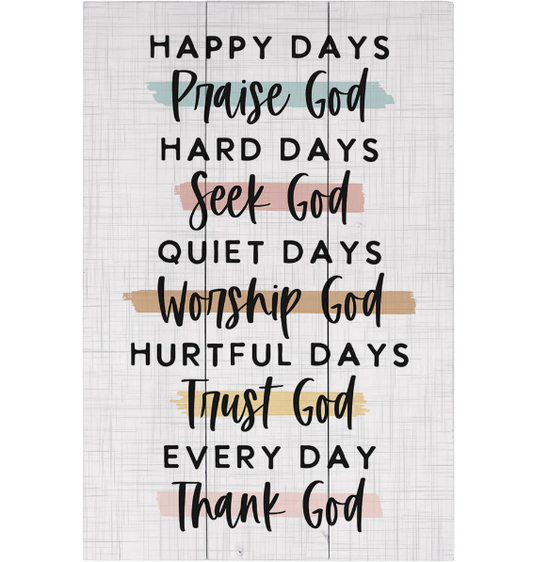 HAPPY DAYS
Praise God
HARD DAYS
Seek God
QUIET DAYS
Worship God
HURTFUL DAYS
Trust God
EVERY DAY
Thank God